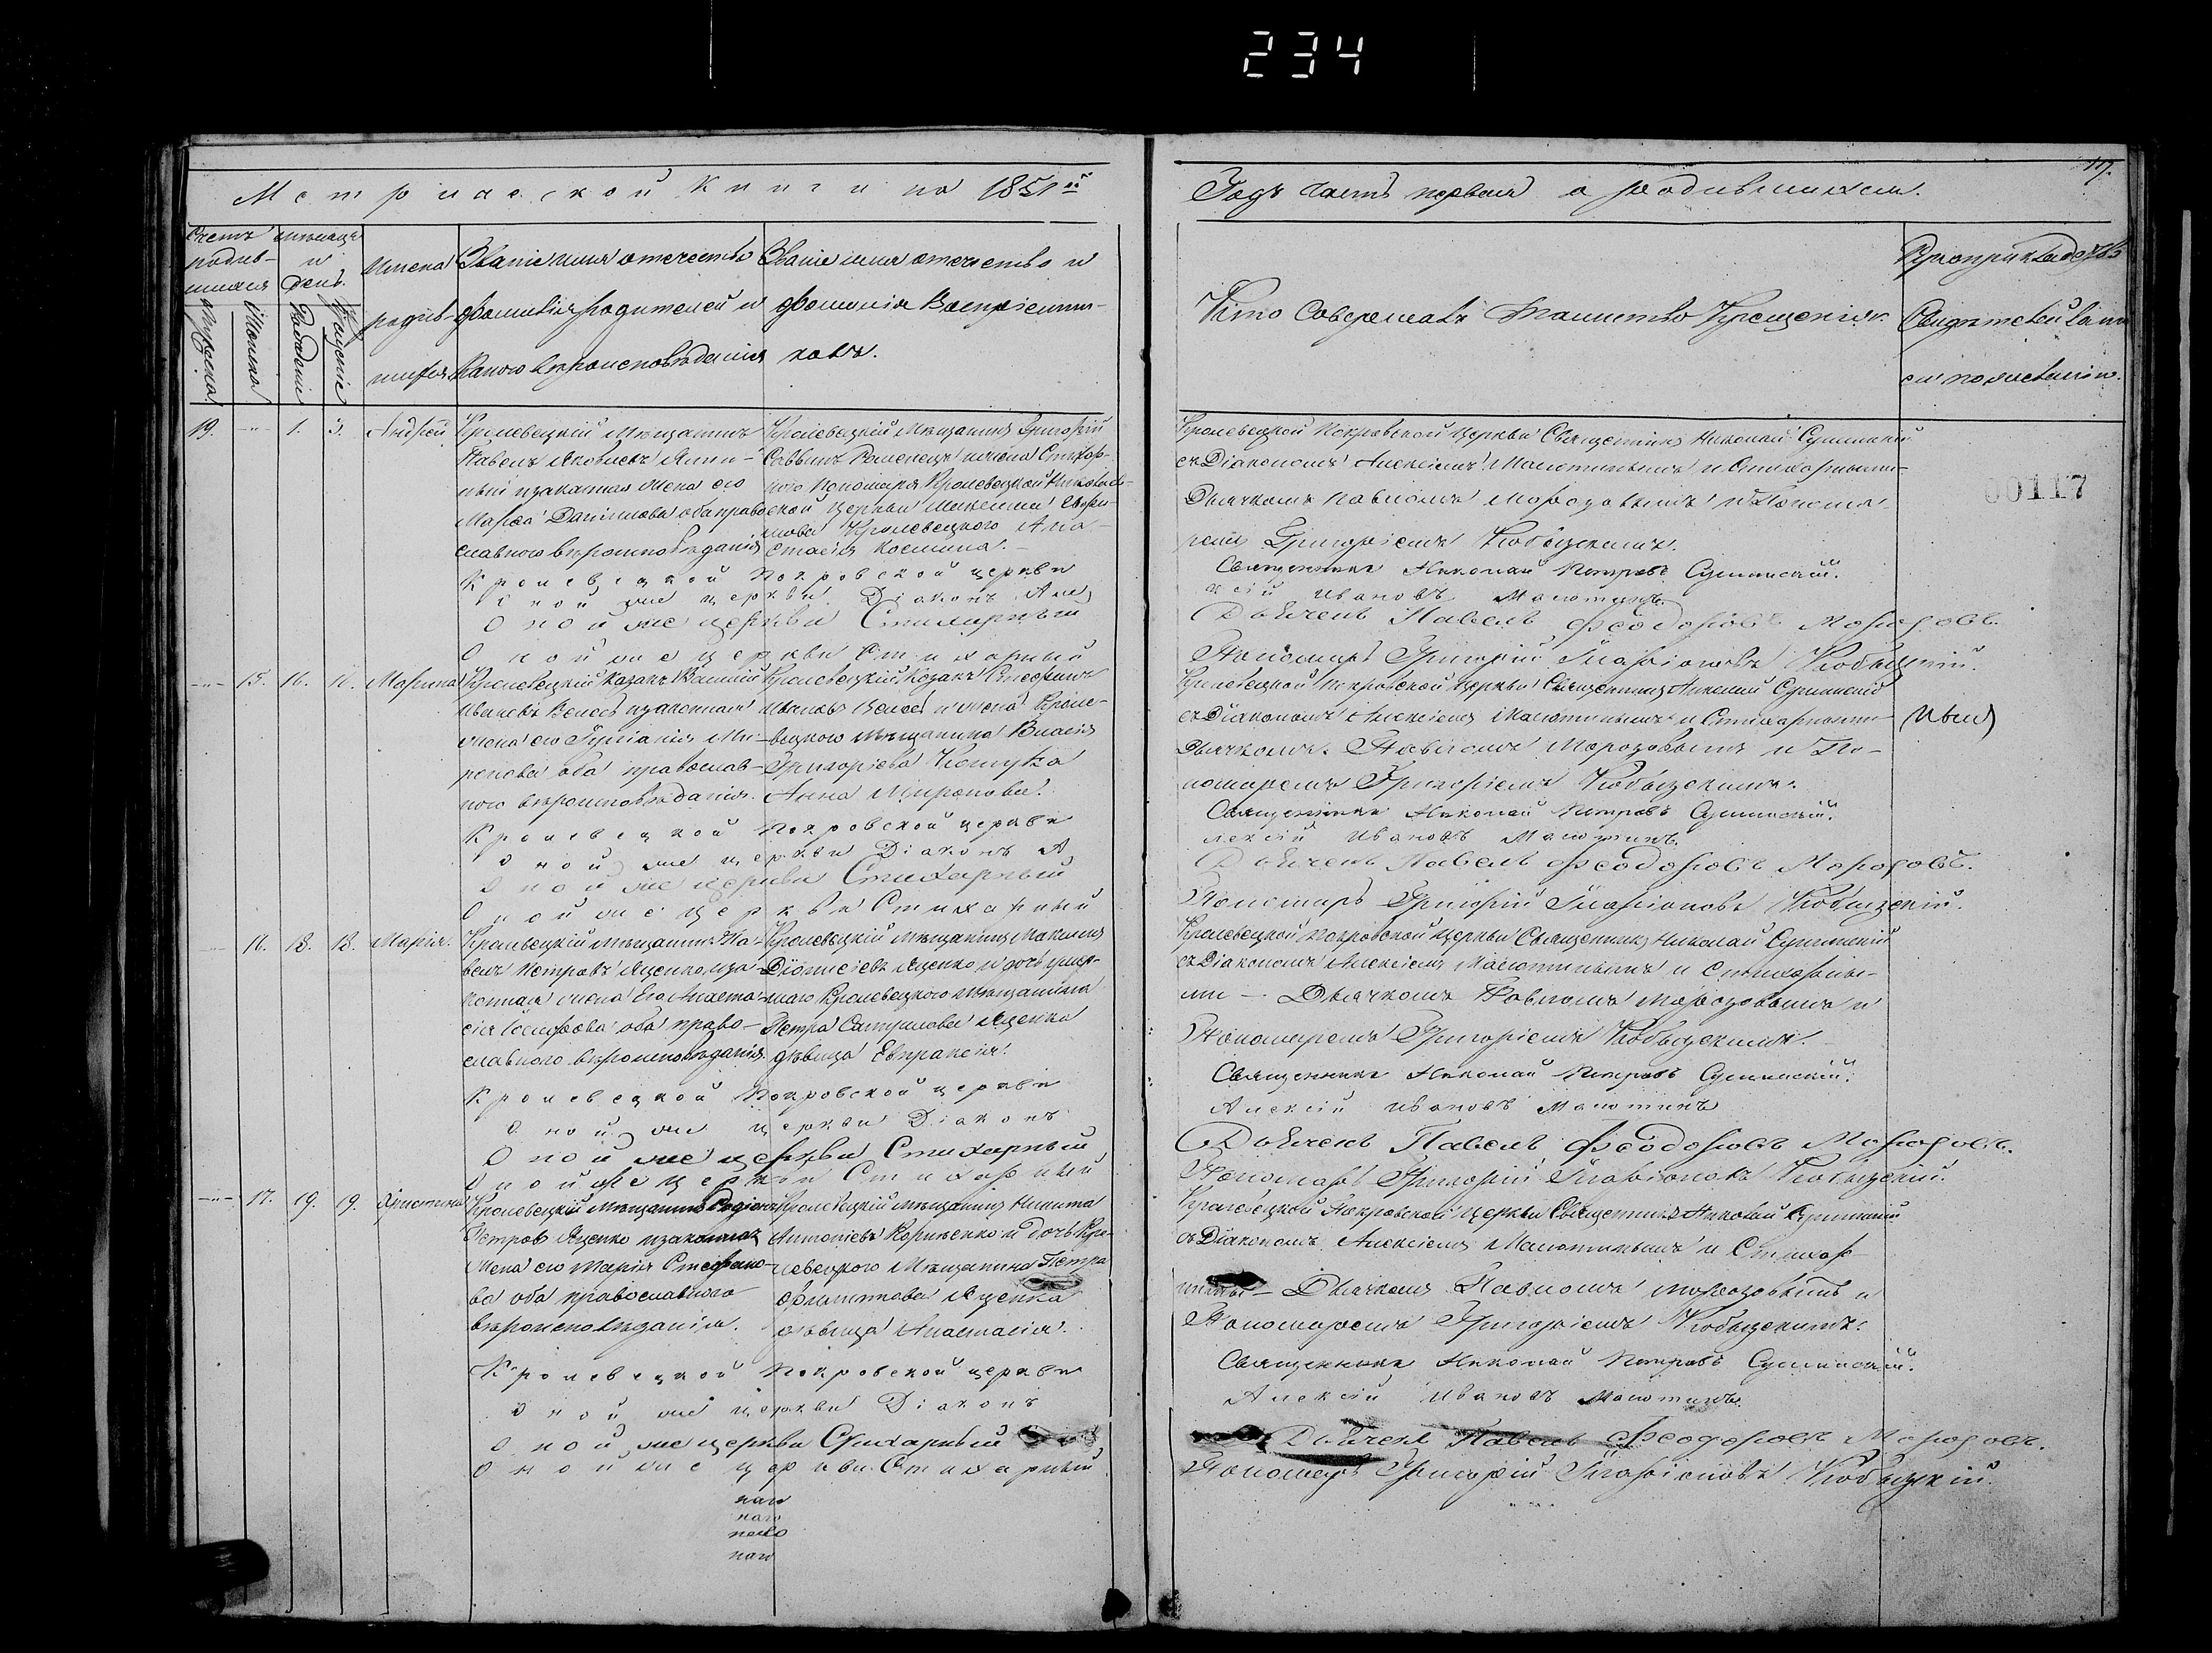 234
117.
Метрической Книги на 1851й
Годъ Часть первая о родившихся.
Счетъ родив-
шихся
Мѣсяцъ
и
День.
Мужеска
Женска
Рожденіе
Крещеніе
Имена
родив-
шихся
Званіе имя отчество
фамилія родителей и
какого вѣроисповѣданія
Званіе имя отчество и
фамилія Воспріемни-
ковъ.
Кто Совершалъ Таинство Крещенія.
Рукоприкладство
Свидѣтелей запи-
си по желанію.
19. 1. 3. Андрей
Кролевецкій Мѣщанинъ
Павелъ Яковлевъ
и законная жена его
Марфа Даніилова оба право-
славнаго вѣроисповѣданія
Кролевецкій Мѣщанинъ Григорій
Саввинъ и жена Стихар-
наго Пономаря Кролевецкой Николаев-
ской Церкви
Кролевецкаго Ана-
стасія Космина.
Кролевецкой Покровской Церкви Священникъ Николай Сушинскій
съ Діакономъ Алексіемъ Малютинымъ и Стихарными
Дьячкомъ Павломъ Морозовымъ и Понома-
ремъ Григоріемъ Кобыщскимъ.
Кролевецкой Покровской церкви Священникъ Николай Петровъ Сушинскій.
Оной же церкви Діаконъ Алексій Ивановъ Малютинъ.
Оной же церкви Стихарный Дьячекъ Павелъ Феодоровъ Морозовъ.
Оной же церкви Стихарный Пономарь Григорій Иларіоновъ Кобыщскій.
15. 16. 16. Марина
Кролевецкій Козакъ Василій
Ивановъ и законная
жена его Гурианія Ми-
ронова оба православ-
наго вѣроисповѣданія.
Кролевецкій Козакъ Стефанъ
Ивановъ и жена Кроле-
вецкаго мѣщанина Власія
Григорьева
Анна Миронова.
Кролевецкой Покровской Церкви Священникъ Николай Сушинскій
съ Діакономъ Алексіемъ Малютинымъ и Стихарными
Дьячкомъ Павломъ Морозовымъ и По-
номаремъ Григоріемъ Кобыщскимъ.
Кролевецкой Покровской церкви Священникъ Николай Петровъ Сушинскій.
Оной же церкви Діаконъ Алексій Ивановъ Малютинъ.
Оной же церкви Стихарный Дьячекъ Павелъ Феодоровъ Морозовъ.
Оной же церкви Стихарный Пономарь Григорій Иларіоновъ Кобыщскій.
16. 18. 18. Марія.
Кролевецкій мѣщанинъ Па-
велъ Петровъ Яценко и за-
конная жена Его Анаста-
сія Іосифова оба право-
славнаго вѣроисповѣданія.
Кролевецкій мѣщанинъ Максимъ
Діонисіевъ Яценко и дочь умер-
шаго Кролевецкаго мѣщанина
Петра Яценка
дѣвица Евпраксія.
Кролевецкой Покровской Церкви Священникъ Николай Сушинскій
съ Діакономъ Алексіемъ Малютинымъ и Стихарны-
ми – Дьячкомъ Павломъ Морозовымъ и
Пономаремъ Григоріемъ Кобыщскимъ.
Кролевецкой Покровской церкви Священникъ Николай Петровъ Сушинскій.
Оной же церкви Діаконъ Алексій Ивановъ Малютинъ
Оной же церкви Стихарный Дьячекъ Павелъ Феодоровъ Морозовъ.
Оной же церкви Стихарный Пономарь Григорій Иларіоновъ Кобыщскій.
17. 19. 19. Христина
Кролевецкій Мѣщанинъ Родіонъ
Петровъ Яценко и законная
жена его Марія Стефано-
ва оба православнаго
вѣроисповѣданія.
Кролевецкій мѣщанинъ Никита
Антоніевъ и дочь Кро-
левецкаго Мѣщанина Петра
Филиппова Яценка
дѣвица Анастасія.
Кролевецкой Покровской Церкви Священникъ Николай Сушинскій
съ Діакономъ Алексіемъ Малютинымъ и Стихар-
ными – Дьячкомъ Павломъ Морозовымъ и
Пономаремъ Григоріемъ Кобыщскимъ.
Кролевецкой Покровской церкви Священникъ Николай Петровъ Сушинскій.
Оной же церкви Діаконъ Алексій Ивановъ Малютинъ.
Оной же церкви Стихарный Дьячекъ Павелъ Феодоровъ Морозовъ.
Оной же церкви Стихарный Пономарь Григорій Иларіоновъ Кобыщскій.
00117